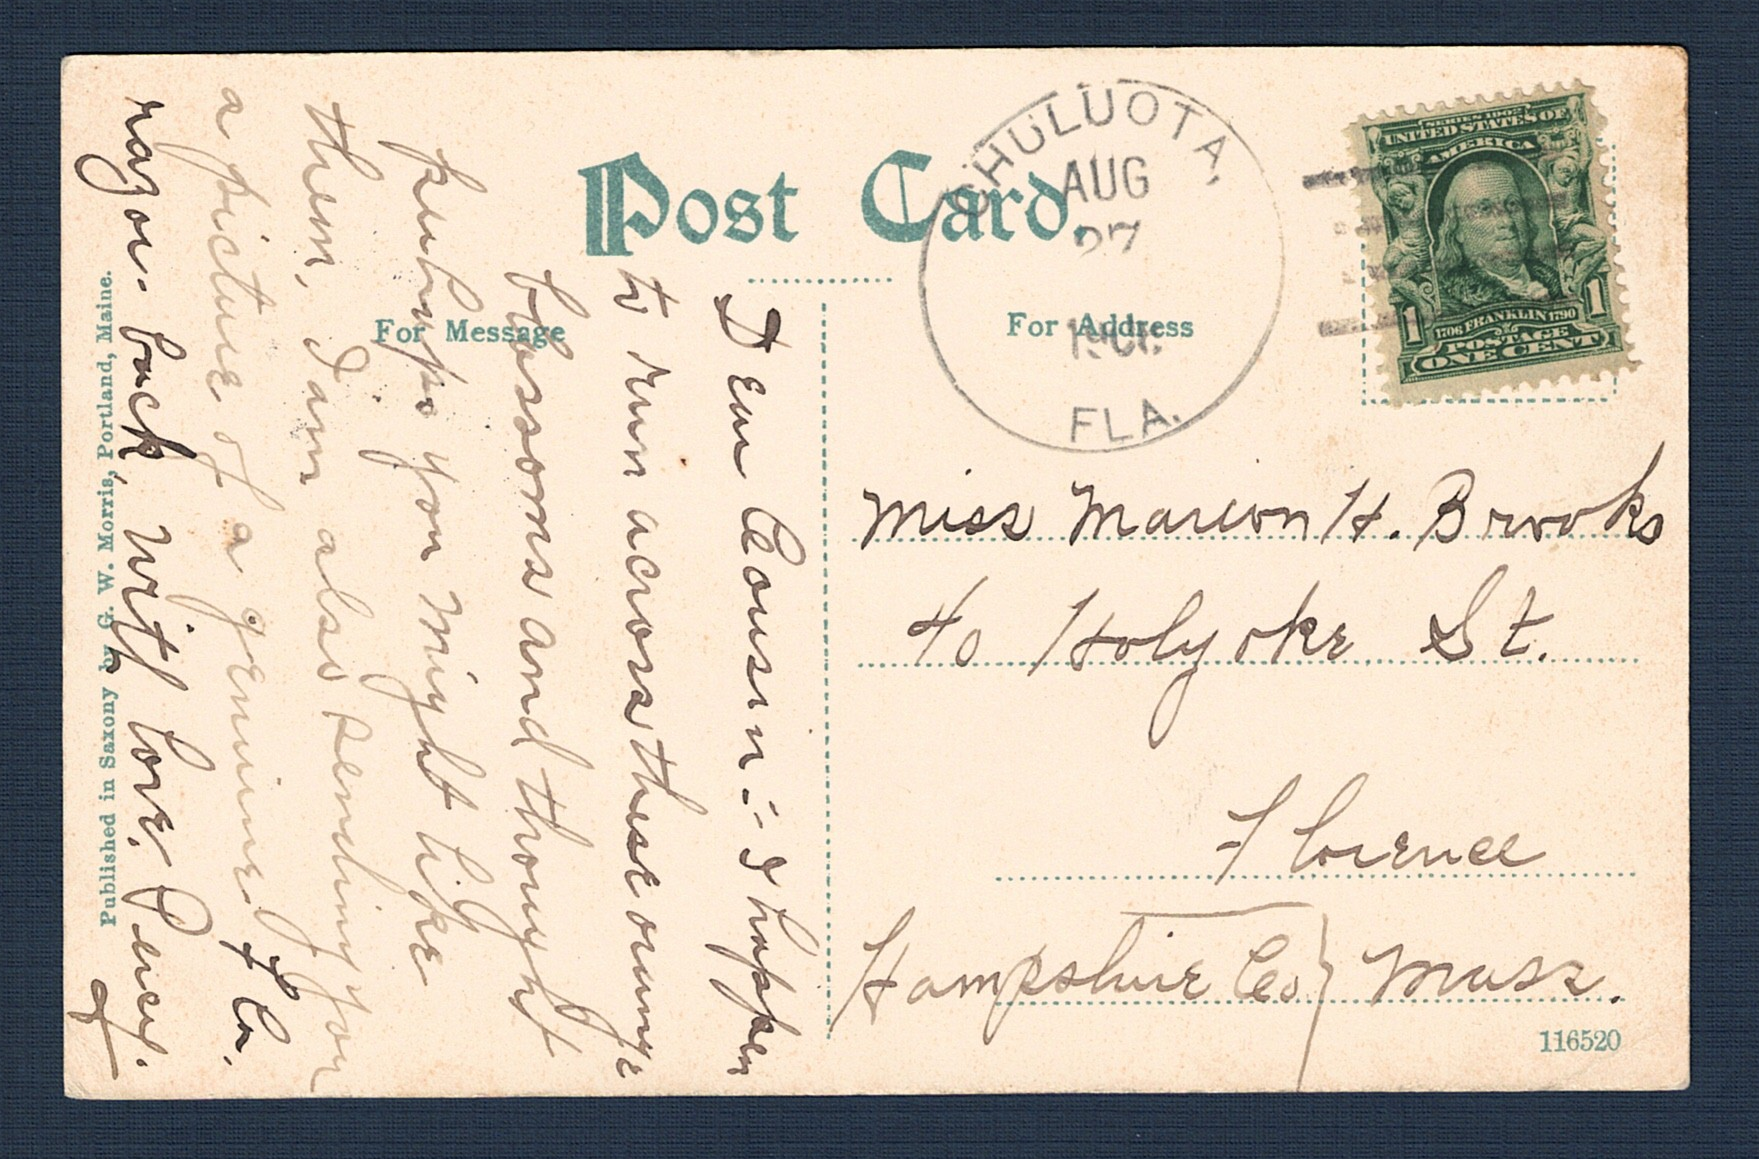 Post Card.
For Message
For Address
CHULUOTA,
AUG
27
FLA.
SERIES 1902
UNITED STATES OF
AMERICA
1706 FRANKLIN 1790
POSTAGE
1 1
ONE CENT
Miss Marion H. Brooks
40 Holyoke St.
Florence
Hampshire Co} Mass.
116520
Dear Cousin:- I happen
to run across these orange
blossoms and thought
perhaps you might like
them, I am also sending you
a picture of a genuine Fla.
razor-back, with love. Percy.
Published in Saxony by G. W. Morris, Portland, Maine.